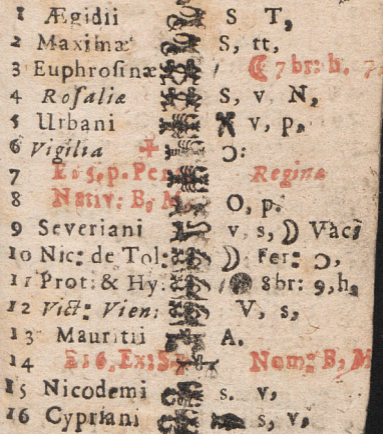 1 Ægidii S T,
2 Maximæ S, tt,
3 Euphrosinæ 7br: h. 7
4 Rosaliæ S, v N,
5 Urbani v, p,
6 Vigilia Ɔ:
7 E. 15. p. Regina
8 Nativ: B, M. O, p.
9 Severiani v s, ☽ Vaci
10 Nic: de Tol: ☽ Fer: Ɔ,
11 Prot: & Hy. 8br: 9, h,
12 Vict: Vien: V, s,
13 Mauritii A.
14 E 16, Ex: Nom: B, M
15 Nicodemi s. v,
16 Cypriani s, v,